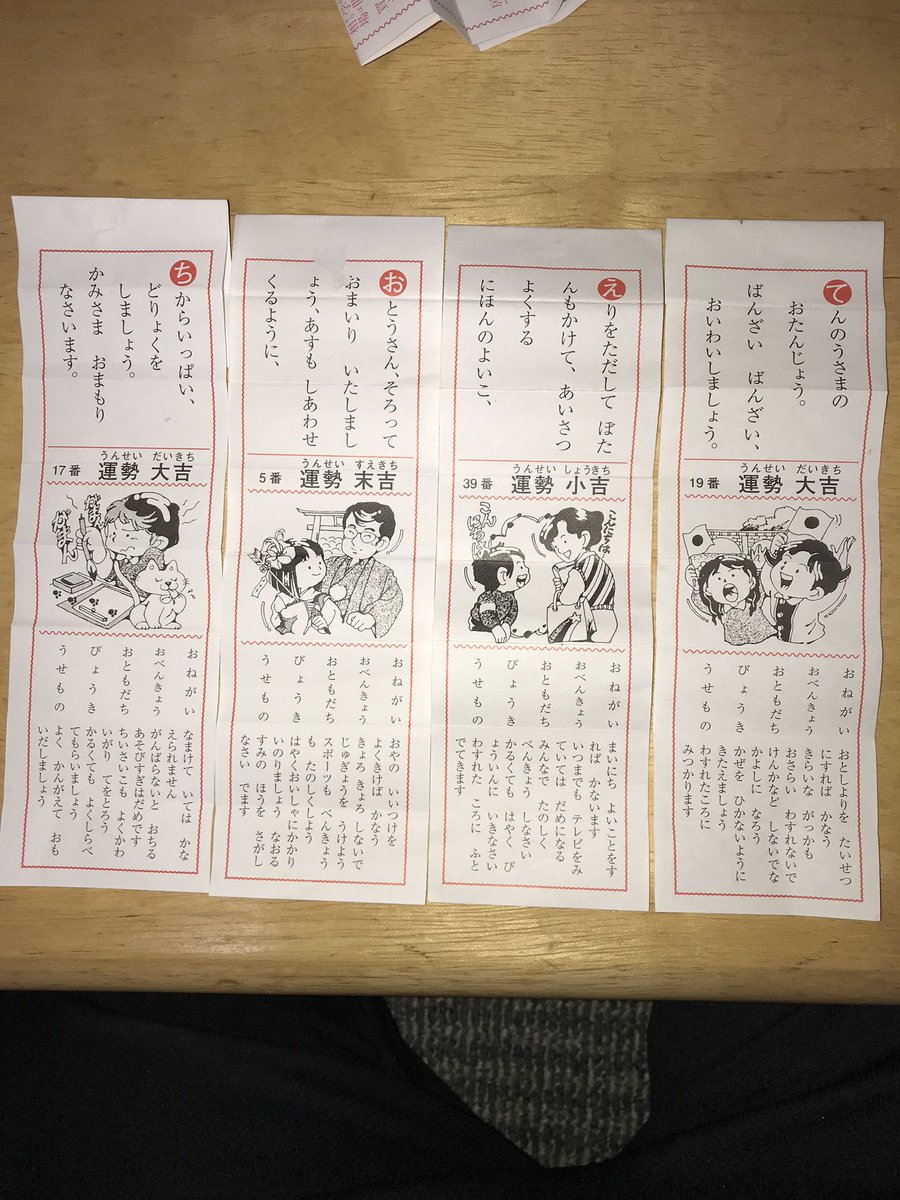 ちからいっぱい、
どりょくを
しましょう。
かみさま おまもり
なさいます。
うんせい だいきち
17番 運勢 大吉
おねがい
なまけて いては かな
えられません
おべんきょう
がんばらないと おちる
あそびすぎはだめです
おともだち
ちいさいこも よくかわ
いがり てをとろう
びょうき
かるくても よくしらべ
てもらいましょう
うせもの
よく かんがえて おも
いだしましょう
おとうさん、そろって
おまいり いたしまし
ょう、あすも しあわせ
くるように、
うんせい すえきち
5番 運勢 末吉
おねがい
おやの いいつけを
よくきけば かなう
おべんきょう
きょろ きょろ しないで
じゅぎょうを うけよう
おともだち
スポーツも べんきょう
も たのしくしよう
びょうき
はやくおいしゃにかかり
いのりましょう なおる
うせもの
すみの ほうを さがし
なさい でます
えりをただして ぼた
んもかけて、あいさつ
よくする
にほんのよいこ、
うんせい しょうきち
39番 運勢 小吉
こんにちは
こんにちは
おねがい
まいにち よいことをす
れば かないます
おべんきょう
いつまでも テレビをみ
ていては だめになる
おともだち
みんなで たのしく
べんきょう しなさい
びょうき
かるくても はやく び
ょういんに いきなさい
うせもの
わすれた ころに ふと
でてきます
てんのうさまの
おたんじょう。
ばんざい ばんざい、
おいわいしましょう。
うんせい だいきち
19番 運勢 大吉
おねがい
おとしよりを たいせつ
にすれば かなう
おべんきょう
きらいな がっかも
おさらい わすれないで
おともだち
けんかなど しないでな
かよしに なろう
びょうき
かぜを ひかないように
きたえましょう
うせもの
わすれたころに
みつかります